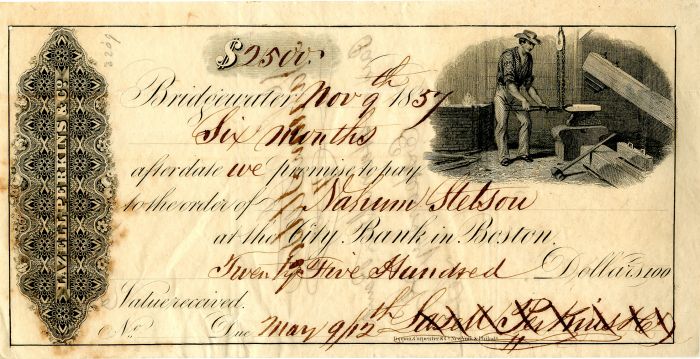 LAZELL, PERKINS & CO.
3209
$2500.
Bridgewater, Nov 9th 1857
Six Months
after date we promise to pay
to the order of Nahum Stetson
at the City Bank in Boston.
Twenty Five Hundred Dollars, 100
Value received.
No. Due May 9/12th Lazell Perkins & Co